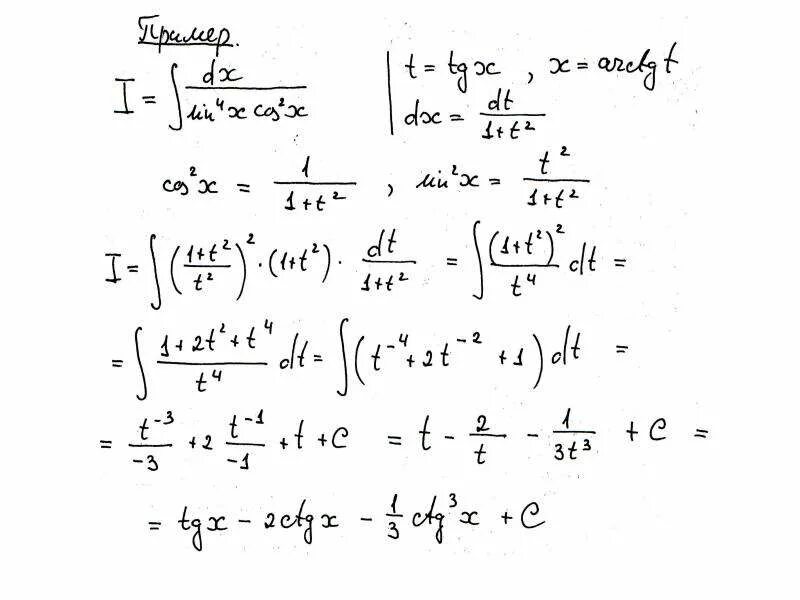 Пример.
I = ∫ dx / (sin⁴x cos²x) | t = tg x , x = arctg t
| dx = dt / (1+t²)
cos²x = 1 / (1+t²) , sin²x = t² / (1+t²)
I = ∫ ((1+t²) / t²)² · (1+t²) · dt / (1+t²) = ∫ (1+t²)² / t⁴ dt =
= ∫ (1 + 2t² + t⁴) / t⁴ dt = ∫ (t⁻⁴ + 2t⁻² + 1) dt =
= t⁻³ / -3 + 2 t⁻¹ / -1 + t + C = t - 2/t - 1/(3t³) + C =
= tg x - 2ctg x - 1/3 ctg³x + C